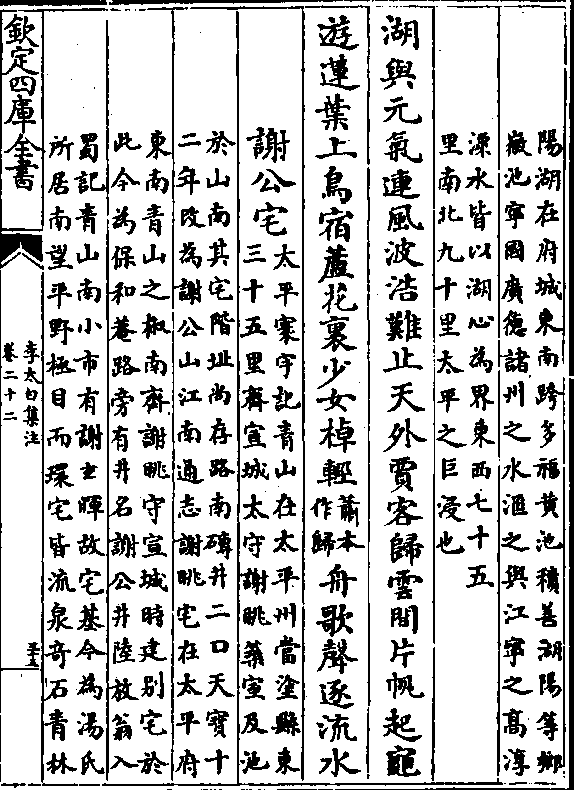 陽湖在府城東南跨多福黄池積善湖陽等鄉
徽池寧國廣德諸州之水滙之與江寧之髙淳
溧水皆以湖心為界東西七十五
里南北九十里太平之巨浸也
湖與元氣連風波浩難止天外賈客歸雲間片帆起龜
遊蓮葉上鳥宿蘆花裏少女棹輕
蕭本
作歸
舟歌聲逐流水
謝公宅
太平寰宇記青山在太平州當塗縣東
三十五里齊宣城太守謝朓築室及池
於山南其宅階址尚存路南磚井二口天寳十
二年改為謝公山江南通志謝朓宅在太平府
東南青山之椒南齊謝朓守宣城時建别宅於
此今為保和菴路旁有井名謝公井陸放翁入
蜀記青山南小市有謝玄暉故宅基今為湯氏
所居南望平野極目而環宅皆流泉奇石青林
欽定四庫全書
李太白集注
卷二十二